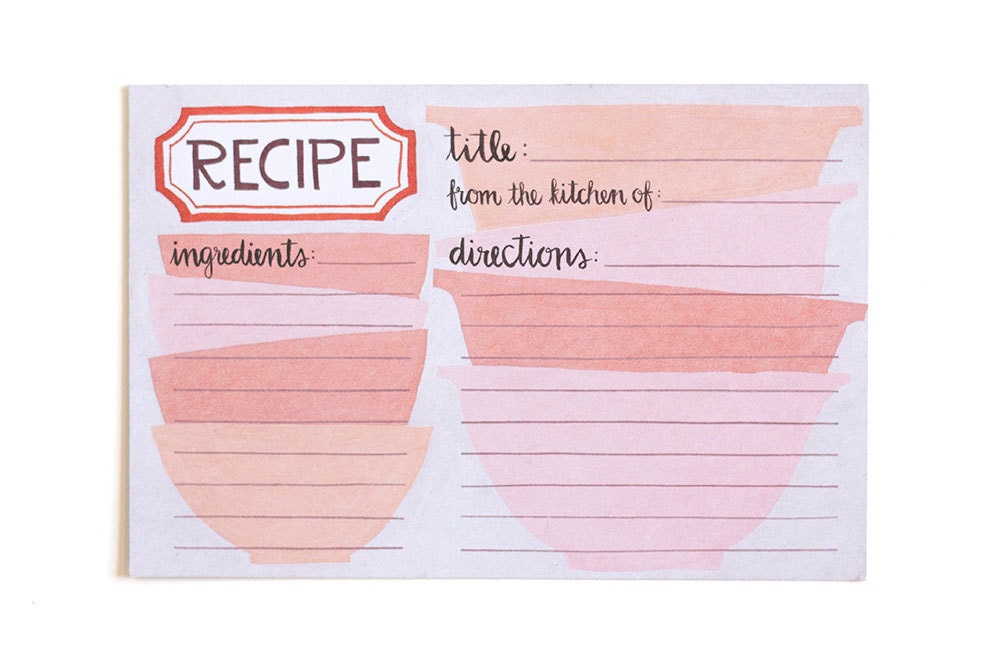 RECIPE
title:
from the kitchen of:
ingredients:
directions: